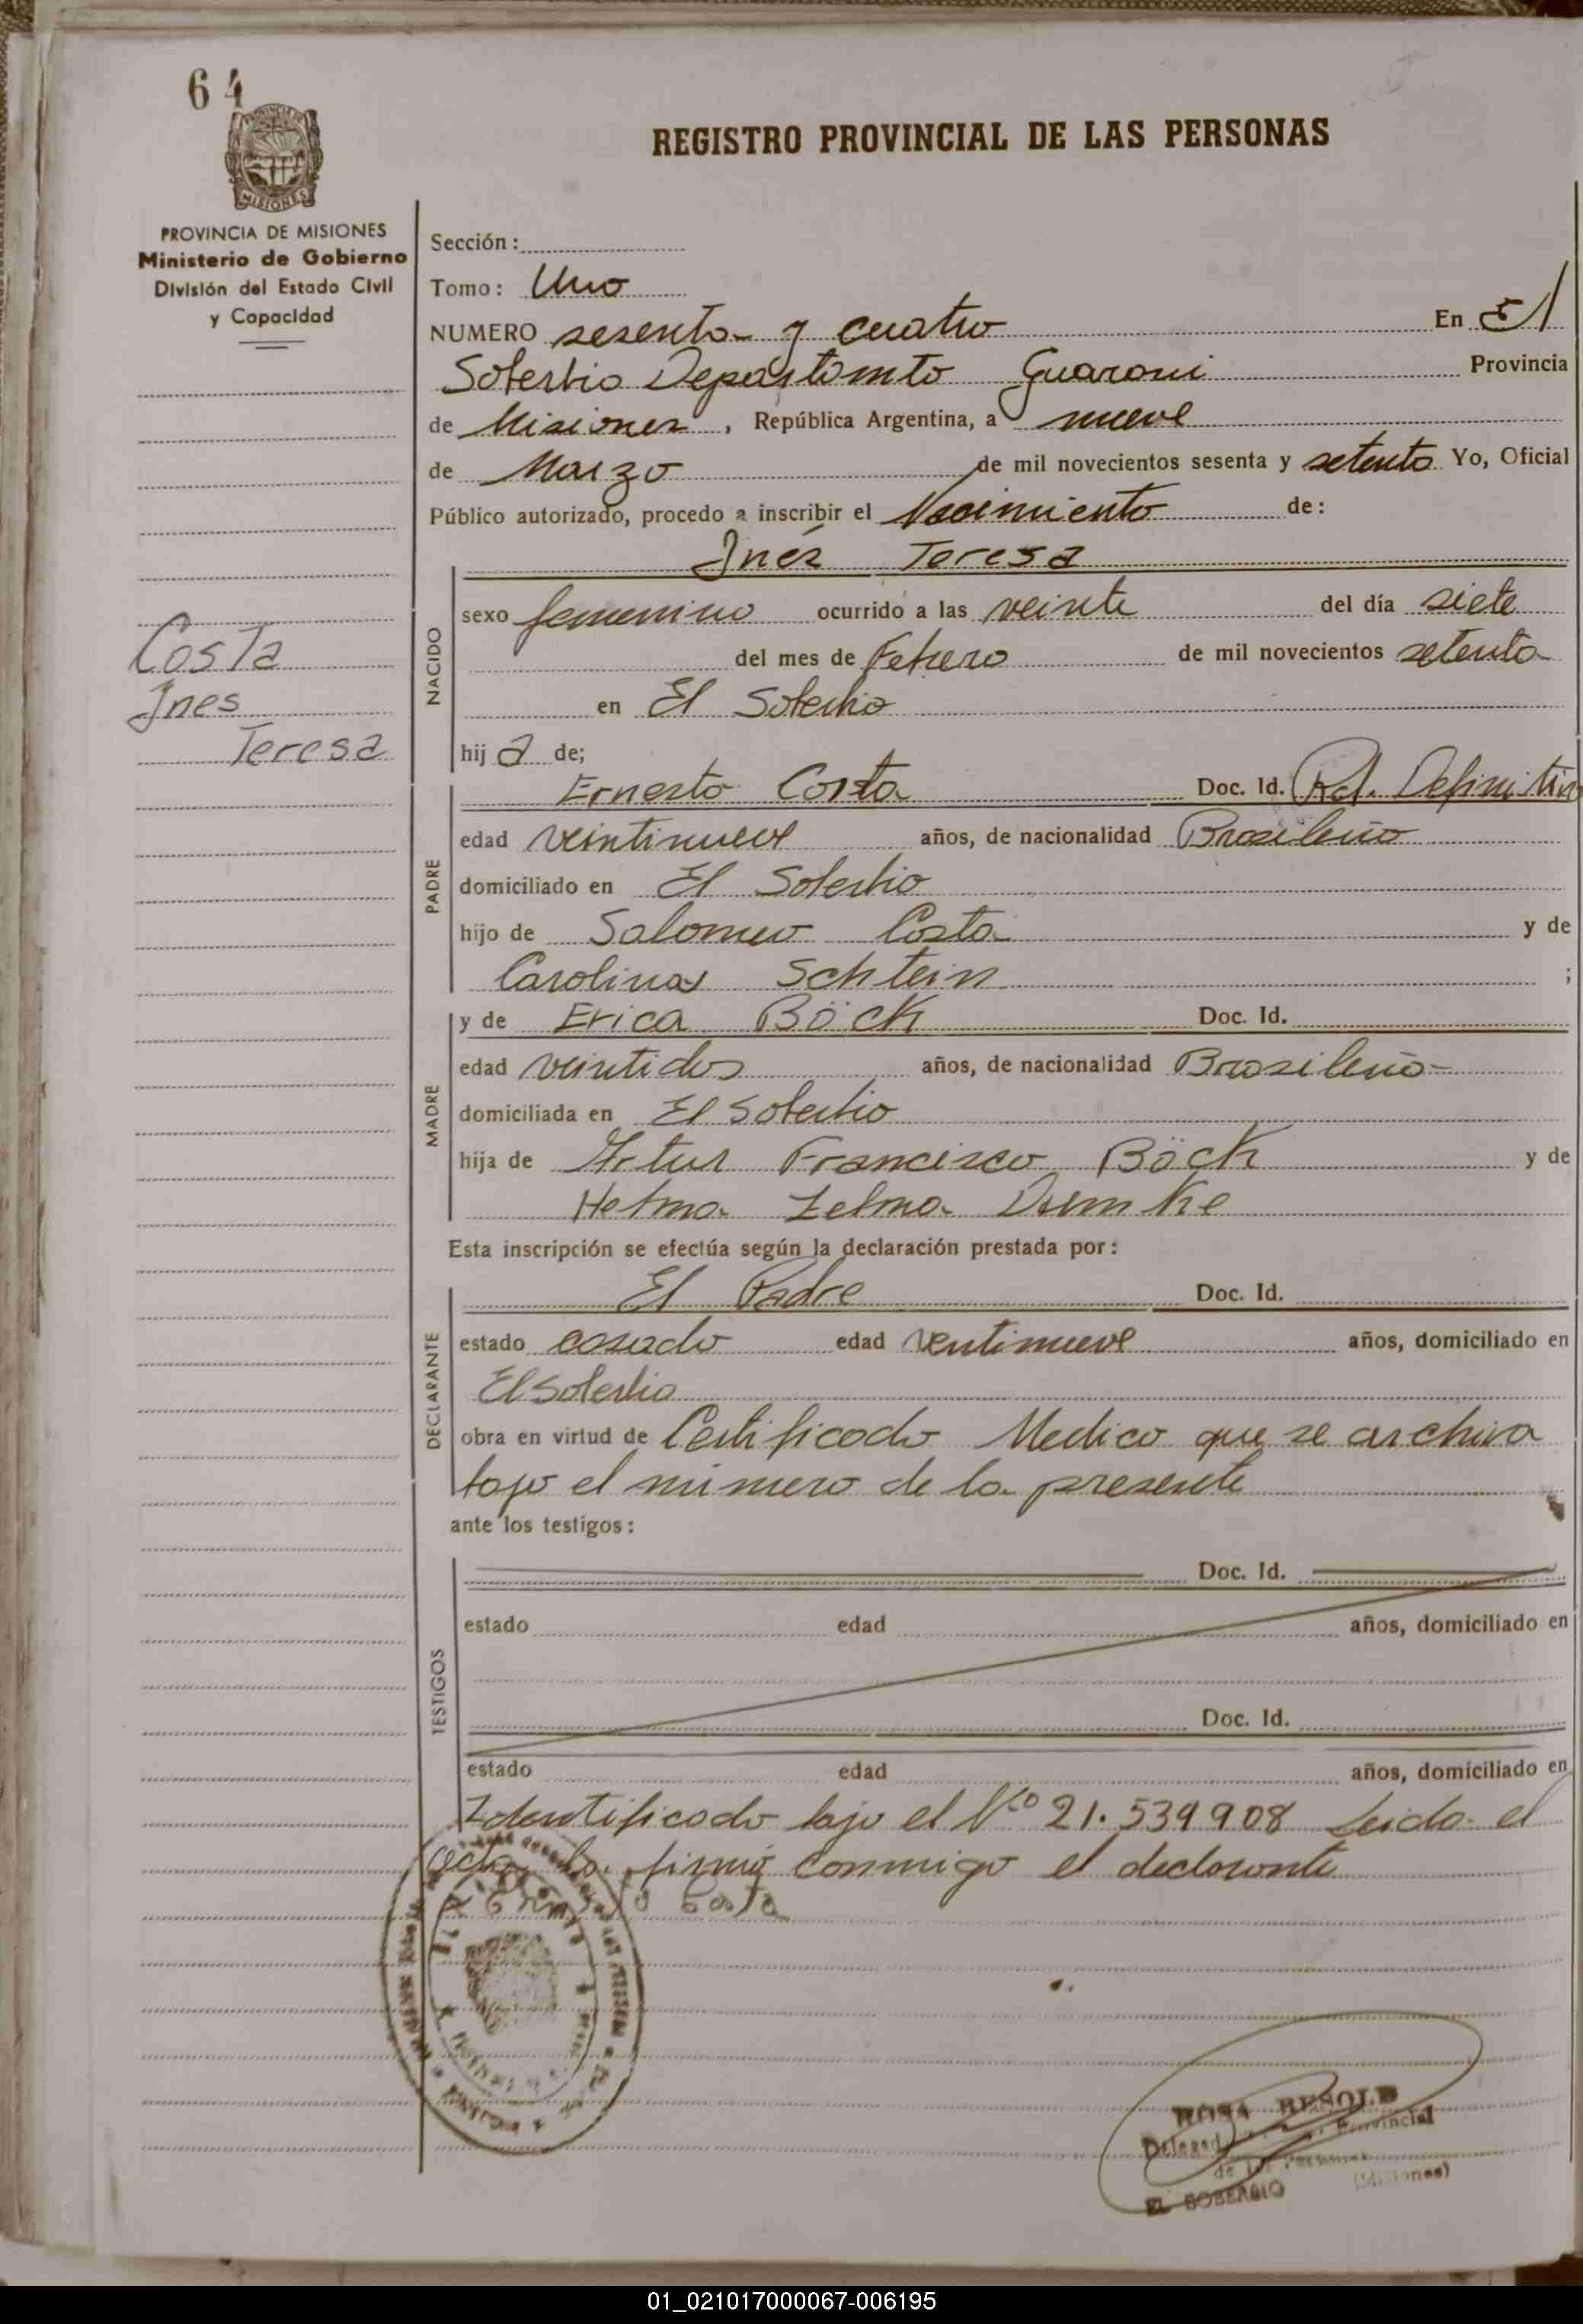 64
MISIONES
PROVINCIA DE MISIONES
Ministerio de Gobierno
División del Estado Civil
y Capacidad
REGISTRO PROVINCIAL DE LAS PERSONAS
Sección:
Tomo: Uno
NUMERO sesenta y cuatro En El
Soberbio Departamento Guarani Provincia
de Misiones, República Argentina, a nueve
de Marzo de mil novecientos sesenta y setenta Yo, Oficial
Público autorizado, procedo a inscribir el Nacimiento de:
Inés Teresa
Costa
Ines
Teresa
NACIDO
sexo femenino ocurrido a las veinte del día siete
del mes de Febrero de mil novecientos setenta
en El Soberbio
hija de;
PADRE
Ernesto Costa Doc. Id. Rd. Definitiv
edad veintinueve años, de nacionalidad Brasileño
domiciliado en El Soberbio
hijo de Salomeo Costa y de
Carolina Schtein ;
MADRE
y de Erica Böck Doc. Id.
edad veintidos años, de nacionalidad Brasileña
domiciliada en El Soberbio
hija de Artur Francisco Böck y de
Helma Zelma Dumke
Esta inscripción se efectúa según la declaración prestada por:
DECLARANTE
El Padre Doc. Id.
estado casado edad ventinueve años, domiciliado en
El Soberbio
obra en virtud de Certificado Medico que se archiva
bajo el numero de la presente
ante los testigos:
TESTIGOS
Doc. Id.
estado edad años, domiciliado en
Doc. Id.
estado edad años, domiciliado en
Identificado bajo el Nº 21.539908 Leida el
acta la firmó conmigo el declarante
ROSA BENOLD
Provincial
de las Personas
EL SOBERBIO (Misiones)
01_021017000067-006195